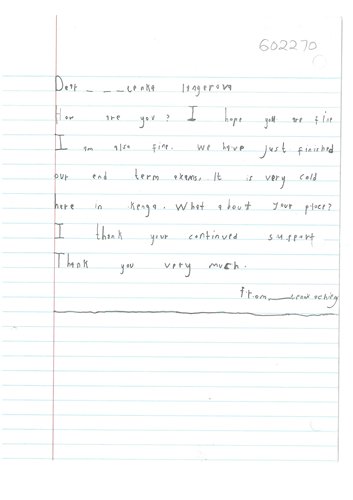 602270
Dear _ _ _ Lenka
How are you? I hope you are fine
I am also fine. We have just finished
our end term exams. It is very cold
here in Kenya. What about your place?
I thank your continued support
Thank you very much.
from,